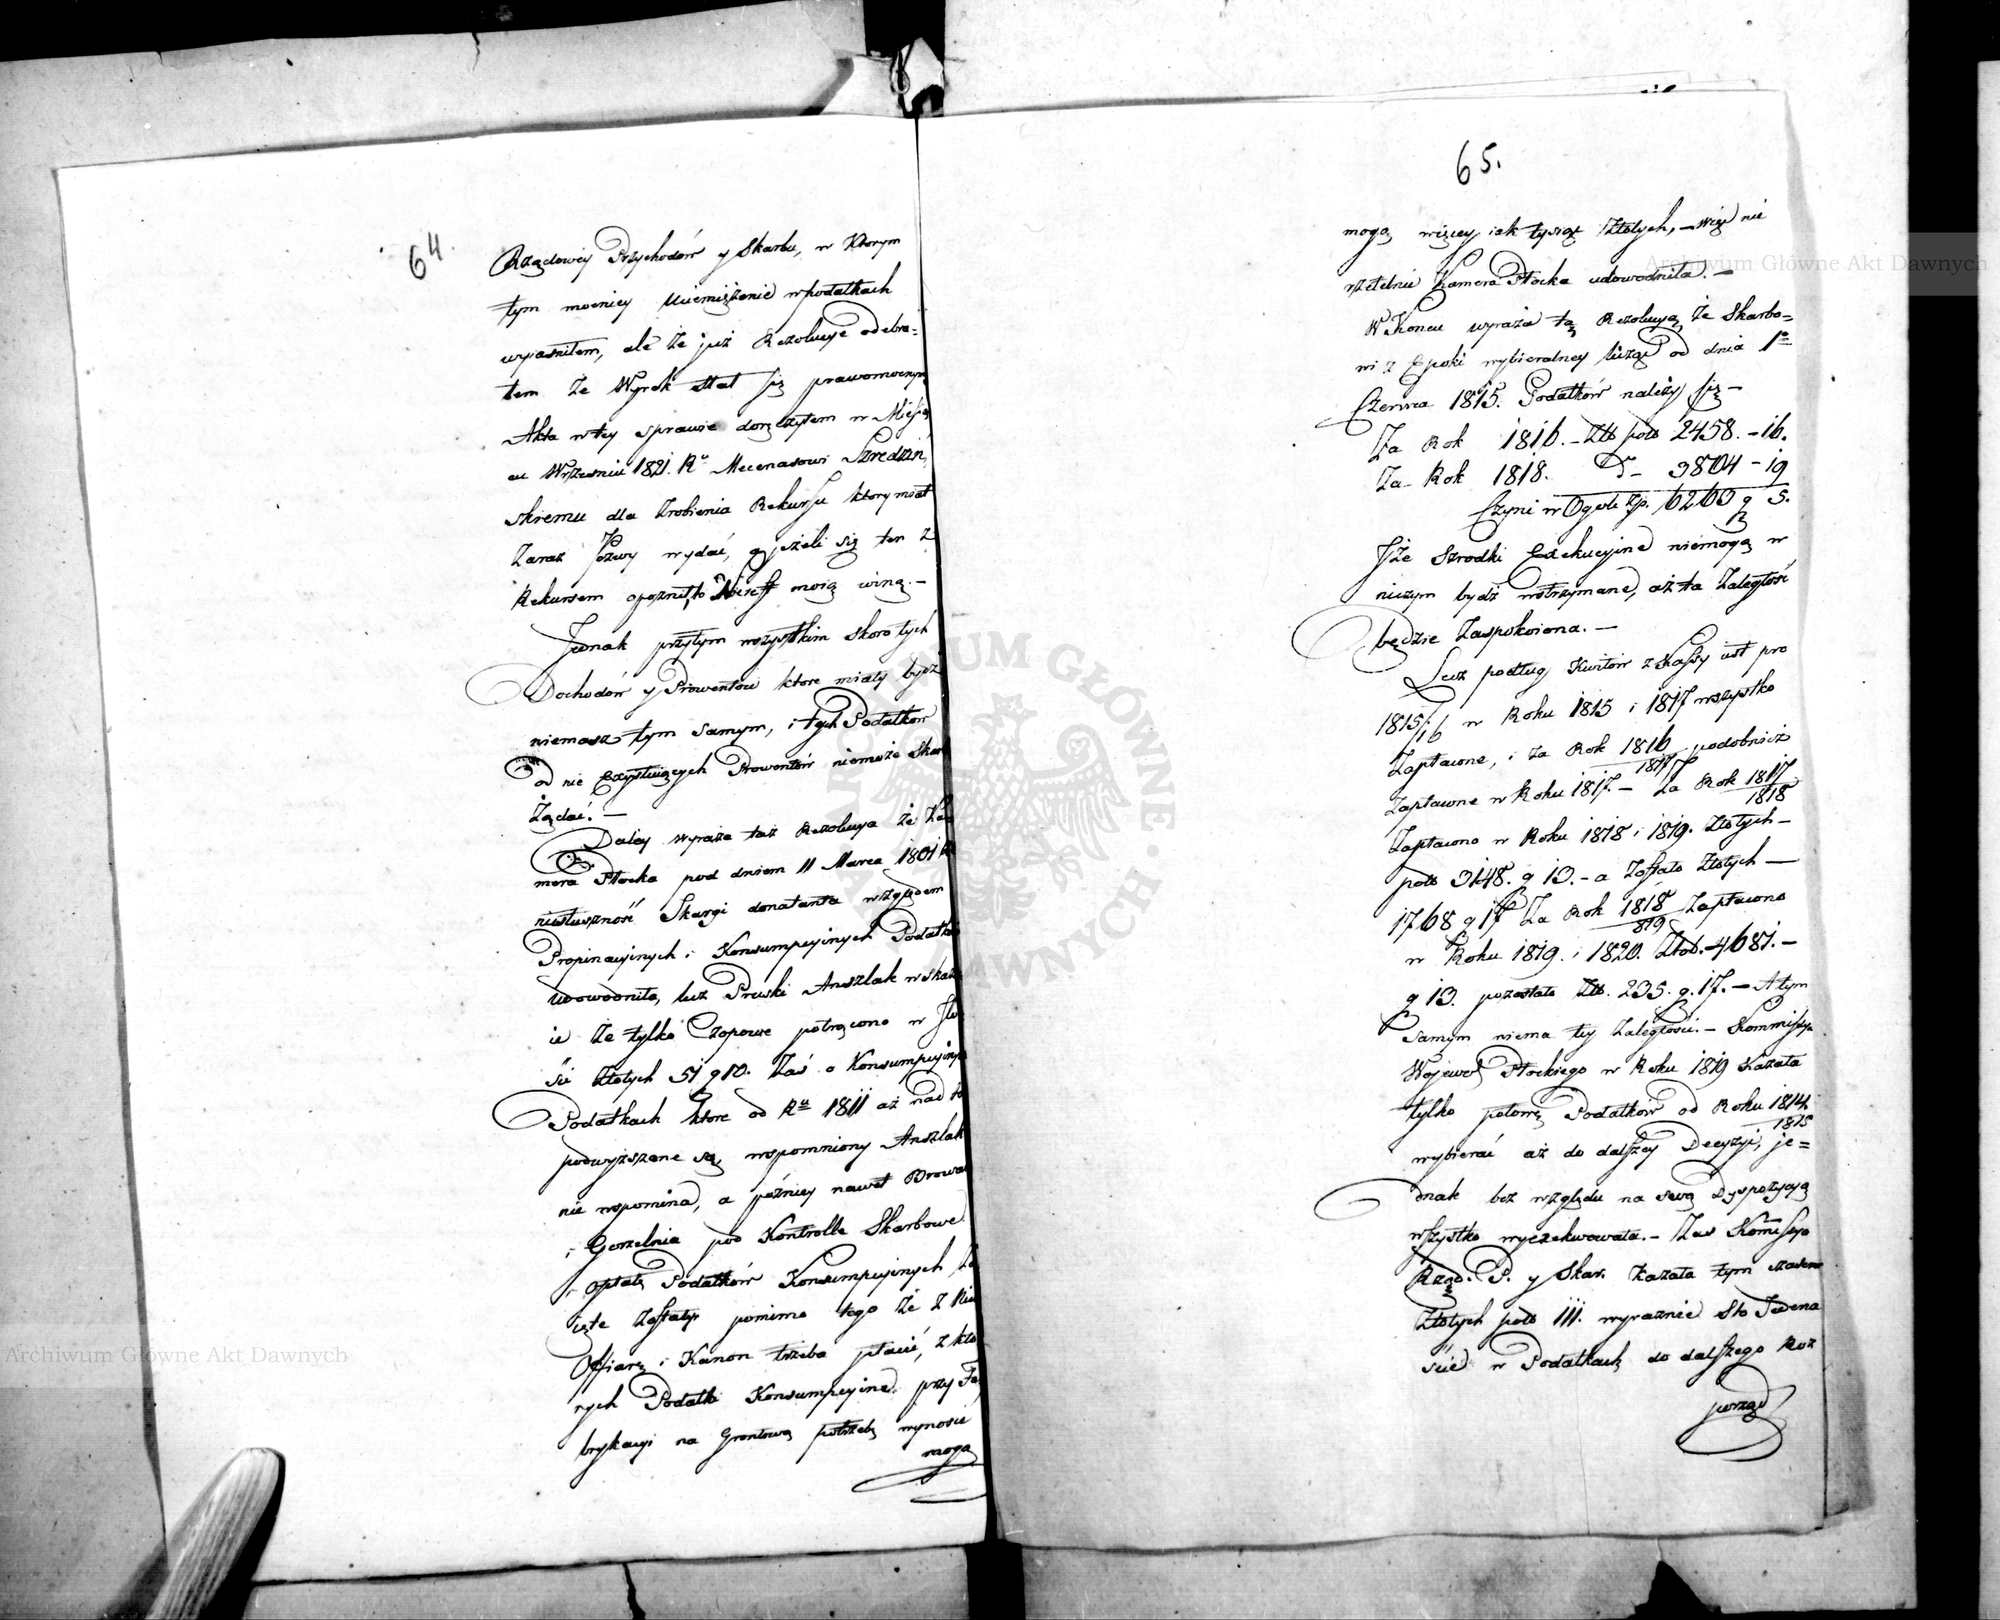 64.
Rządowéy Przychodów y Skarbu, w Ktorym
tym mocniey uciemiężenie w podatkach
wyiasniłem, ale że już Rezolucye odebra=
łem że Wyrok stał się prawomocnym
Akta w tey sprawie doręczyłem w Miesią
cu Wrzesniu 1821. Ru Mecenasowi Szredziń
skiemu dla zrobienia Rekursu który miał
zaraz Pozwy wydać, y jeżeli się ten z
Rekursem opoznił, to nie iest moią winą. —
Jednak przytym wszystkim skoro tych
Dochodów y Prowentów które miały bydź
niemasz tym samym, i tych Podatków
od nie Exystuiących Prowentów niemoże Skarb
Żądać. —
Daley wyraża taż Rezolucya że Ka
mera Płocka pod dniem 11 Marca 1801
niesłuszność Skargi donatanta względem
Propinacyinych i Konsumpcyinych Podatków
udowodniła, lecz Pruski Anszlak wskazu
ie że tylko Czopowe potrącono w Ilo
ści Złotych 51 g 10. Zaś o Konsumpcyinych
Podatkach które od Ru 1811 aż nad to
podwyższone są, wspomniony Anszlak
nie wspomina, a pózniey nawet Browar
i Gorzelnia pod Kontrolle Skarbowe
i opłatę Podatków Konsumpcyinych za
ięte zostały pomimo tego że z nich
Offiarę i Kanon trzeba płacić, z któ
rych Podatki Konsumpcyine przy Fa
brykacyi na Gruntową potrzebę wynosić
mogą
65.
mogą więcey iak tysiąc Złotych, — więc nie
rzetelnie Kamera Płocka udowodniła. —
W Koncu wyraża tą Rezolucyą, że Skarbo=
wi z Epoki wybieralney licząc od dnia 1o
Czerwca 1815. Podatków należy się —
Za Rok 1816. — Złł pols 2458. — 16.
Za Rok 1818. D — 3804 — 19
Czyni w Ogule Zp. 6263 g 5.
Iże Szrodki Exekucyine niemogą w
niczym bydź wstrzymane, aż ta Zaległość
będzie Zaspokoiona. —
Lecz podług Kwitów z Kassy ust pro
1815/16 w Roku 1815 i 1817 wszystko
Zapłacone, i za Rok 1816/1817 podobnież
Zapłacone w Roku 1817. — Za Rok 1817/1818
Zapłacono w Roku 1818 i 1819. Złotych —
pols 3148. g 13. — a Zostało Złotych —
1768 g 17 Za Rok 1818/819 Zapłacono
w Roku 1819. i 1820. Złot. — 4681. —
g 13. pozostało Złł. 235. g. 17. — A tym
samym niema tey Zaległości. — Kommissya
Wojewod Płockiego w Roku 1819 Kazała
tylko połowę Podatków od Roku 1814/1815
wybierać aż do dalszey Decyzyi, je=
dnak bez względu na swą Dyspozycyą
wszystko wyexekwowała. — Zaś Kommissya
Rząd. P. y Skar. Kazała tym czasem
Złotych pols 111. wyraznie Sto Jedena
ście w Podatkach do dalszego Roz
porząd